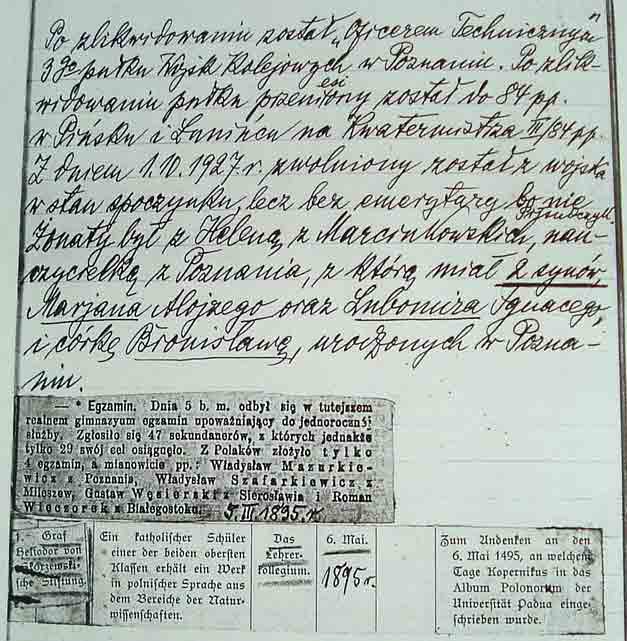 Po zlikwidowaniu został „Oficerem Technicznym”
3go pułku Wojsk Kolejowych w Poznaniu. Po zlik-
widowaniu pułku przeniesiony został do 84 pp.
w Pińsku i Łunińcu na Kwatermistrza III/84 pp.
Z dniem 1. 1927 r. zwolniony został z wojska
w stan spoczynku, lecz bez emerytury, bo nie
Żonaty był z Heleną z Marcinkowskich, nau-
czycielką z Poznania, z którą miał 2 synów,
Marjana Alojzego oraz Lubomira Ignacego,
i córkę Bronisławę, urodzonych w Pozna-
niu.
— * Egzamin. Dnia 5 b. m. odbył się w tutejszem
realnem gimnazyum egzamin upoważniający do jednorocznéj
służby. Zgłosiło się 47 sekundanerów, z których jednakże
tylko 29 swój cel osiągnęło. Z Polaków złożyło tylko
4 egzamin, a mianowicie pp.: Władysław Mazurkie-
wicz z Poznania, Władysław Szafarkiewicz z
Miłoszew, Gustaw Węsierski z Sierosławia i Roman
Wieczorek z Białegostoku. 5. III. 1895. r.
1. Graf
Heliodor von
Skórzewski-
sche Stiftung.
Ein katholischer Schüler
einer der beiden obersten
Klassen erhält ein Werk
in polnischer Sprache aus
dem Bereiche der Natur-
wissenschaften.
Das
Lehrer-
kollegium.
6. Mai.
1895 r.
Zum Andenken an den
6. Mai 1495, an welchem
Tage Kopernikus in das
Album Polonorum der
Universität Padua einge-
schrieben wurde.